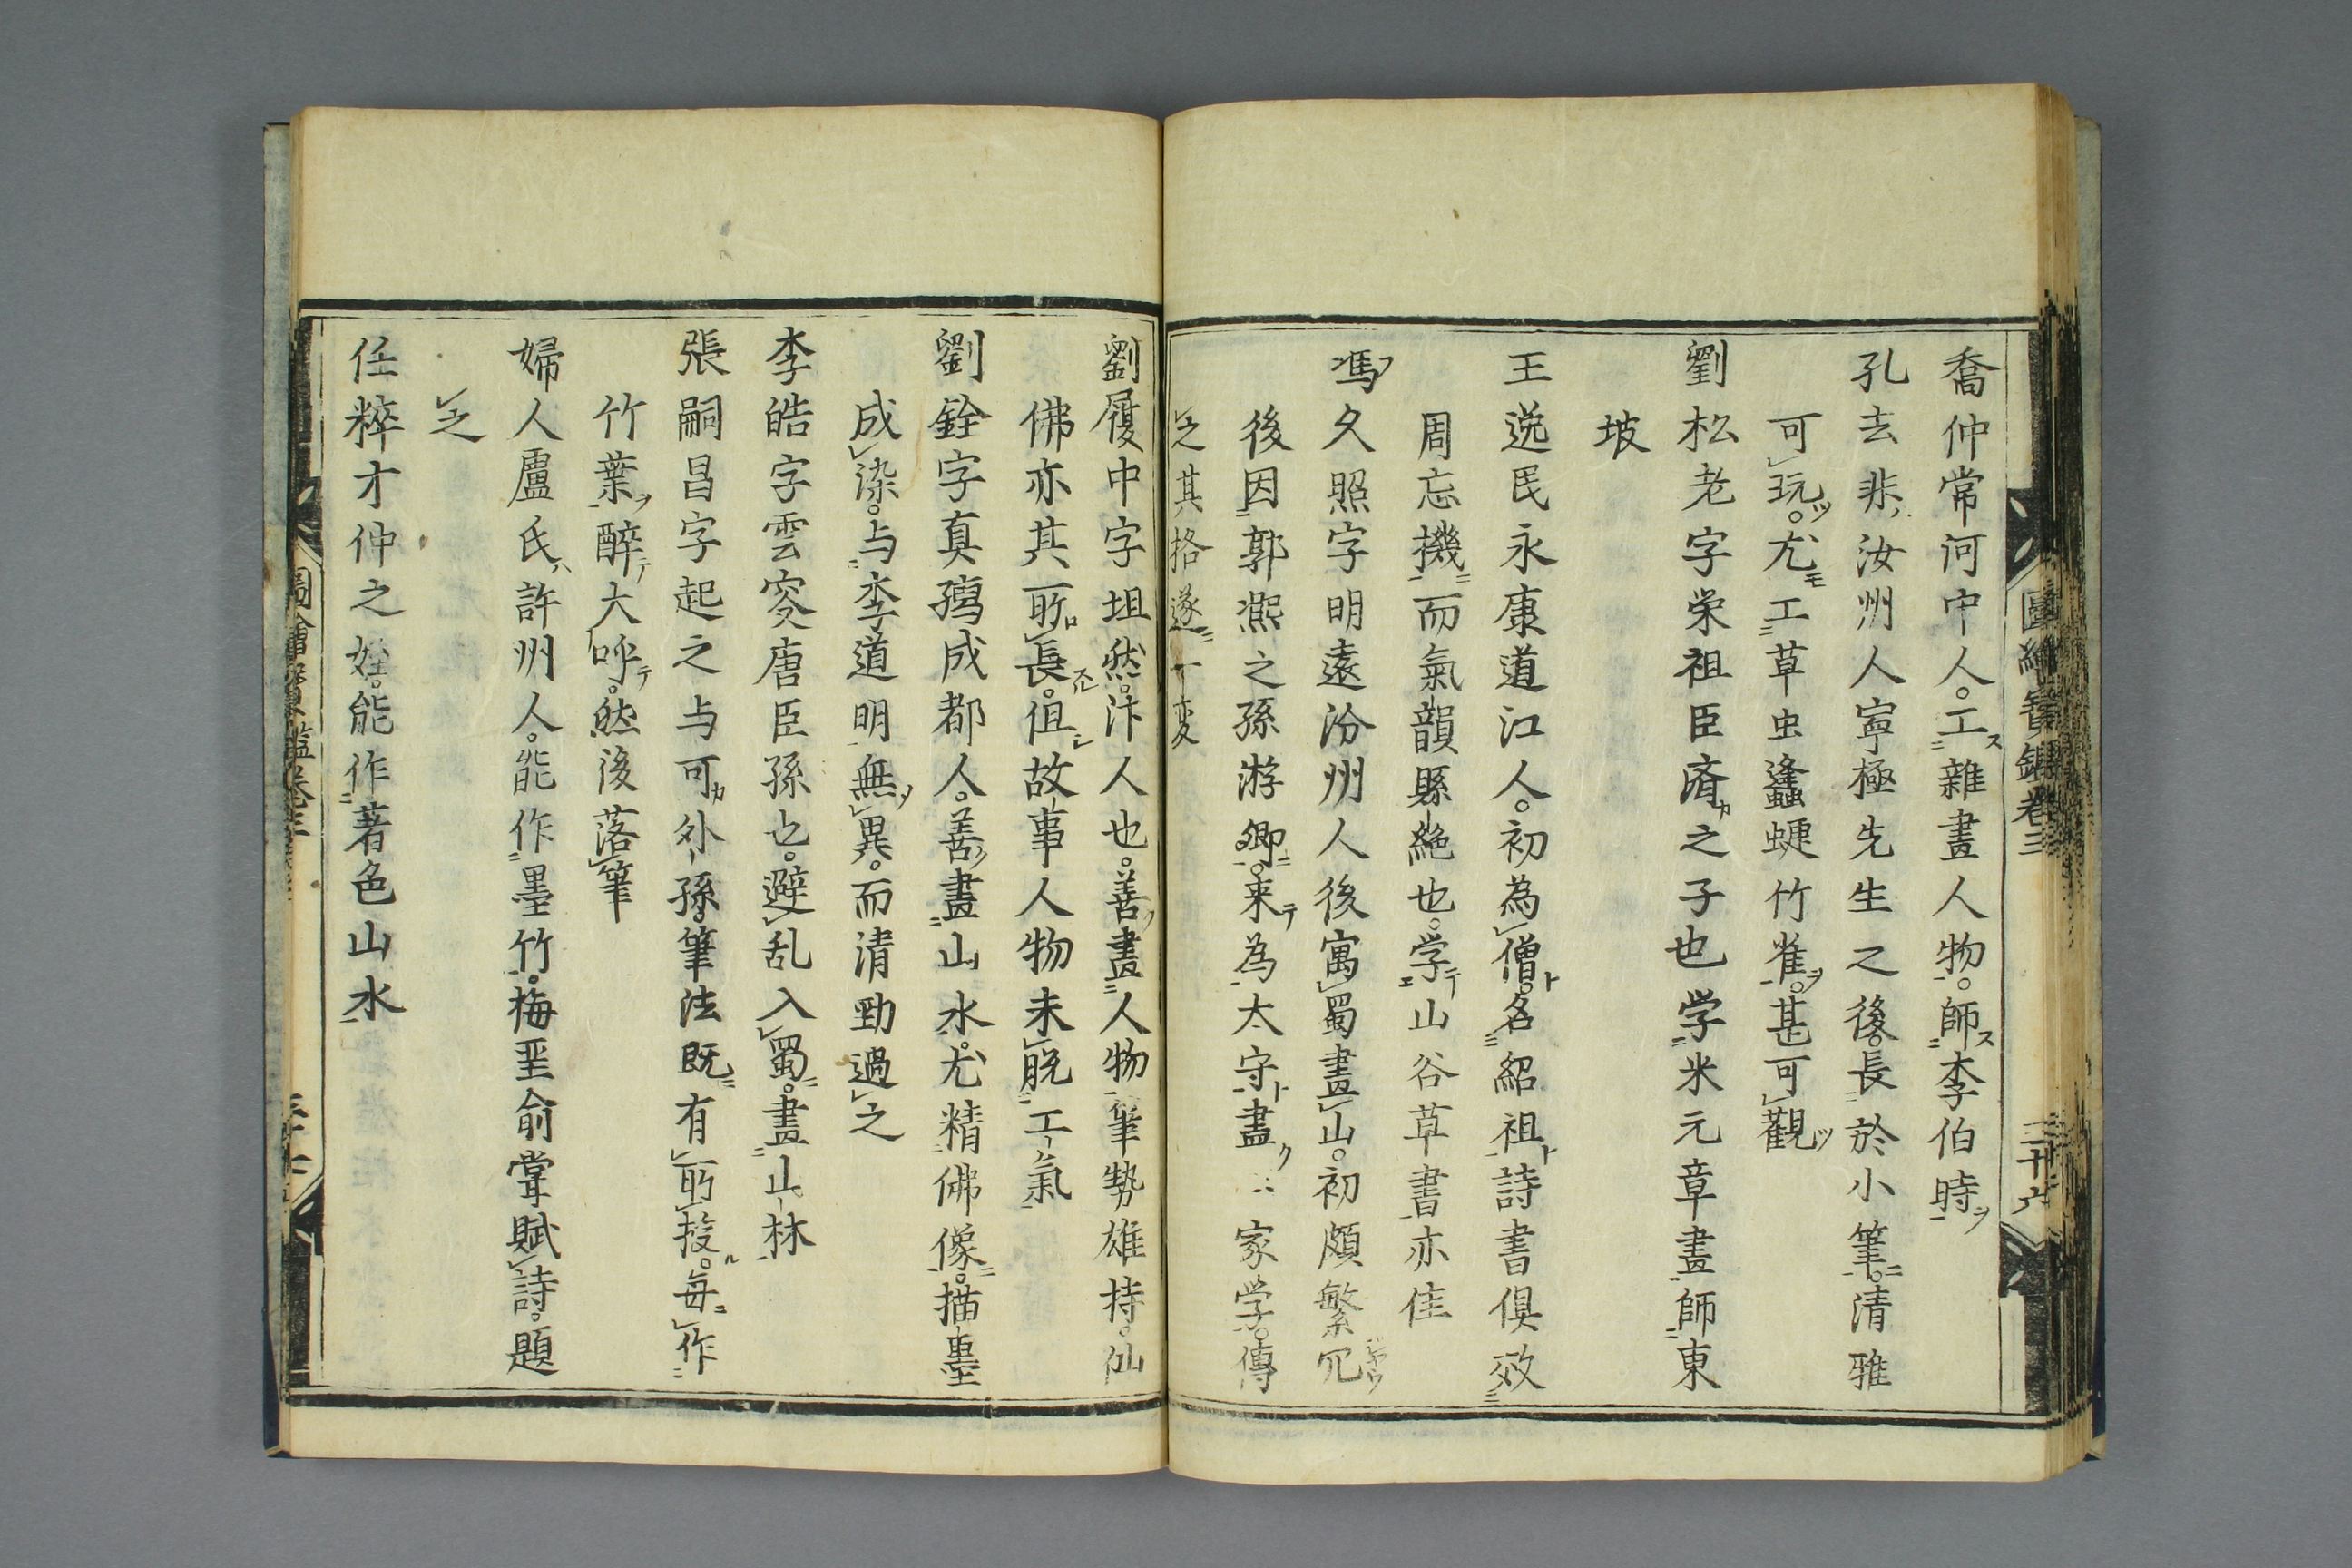 喬仲常河中人。工雜畫人物。師李伯時
孔去非汝州人寧極先生之後。長於小筆。清雅
可玩。尤工草虫蠭蜨竹雀。甚可觀
劉松老字栄祖臣済之子也学米元章畫師東
坡
王逸民永康道江人。初為僧。名紹祖詩書俱效
周忘機而氣韻縣絶也。学山谷草書亦佳
馮久照字明遠汾州人後寓蜀畫山。初頗繁冗
後因郭熙之孫游卿。来為太守畫家学。傳
之其格遂一変
劉履中字坦然。汴人也。善畫人物筆勢雄持。仙
佛亦其所長。但故事人物未脱工氣
劉銓字真孺成都人。善畫山水。尤精佛像。描墨
成染。与李道明無異。而清勁過之
李皓字雲叟唐臣孫也。避乱入蜀。畫山林
張嗣昌字起之与可外孫筆法既有所授。毎作
竹葉醉大呼。然後落筆
婦人盧氏許州人。能作墨竹。梅聖俞嘗賦詩。題
之
任粹才仲之姪。能作著色山水
圖繪寶鑑卷三
三十六
圖繪寶鑑卷三